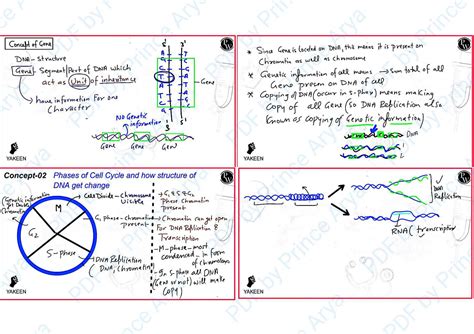 Concept of Gene
DNA - Structure
Gene : Segment/Part of DNA which
act as Unit of inheritance
→ have information for one
Character
NO Genetic
information
Gene
Gene
Gene
Gene
YAKEEN
* Since Gene is located on DNA, this means it is present on
Chromatin as well as Chromosome
* Genetic information of all means → sum total of all
Gene present on DNA of cell
* Copying of DNA (occur in S-phase) means making
Copy of all Gene (so DNA Replication also
Known as Copying of Genetic information)
YAKEEN
Concept-02 Phases of Cell Cycle and how structure of
DNA get change
M
G₂
G₁
S-phase
Cell Divide - Chromosome
visible
G₁ phase - chromatin
present
DNA Replication
(DNA, chromatin)
G₁, S & G₂
Phase Chromatin
Present
- Chromatin can get open
For DNA Replication &
Transcription
- M-phase - most
condensed - in form
of chromosome
- In S-phase all DNA
(Gene or not) will make
Copy
YAKEEN
DNA
Replication
RNA (transcription)
YAKEEN
PDF by Prince Arya